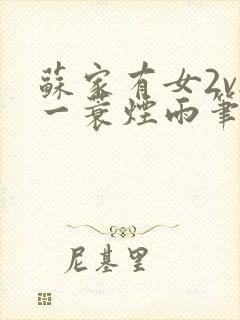 蘇家有女2v
一蓑煙雨筆
尼基里